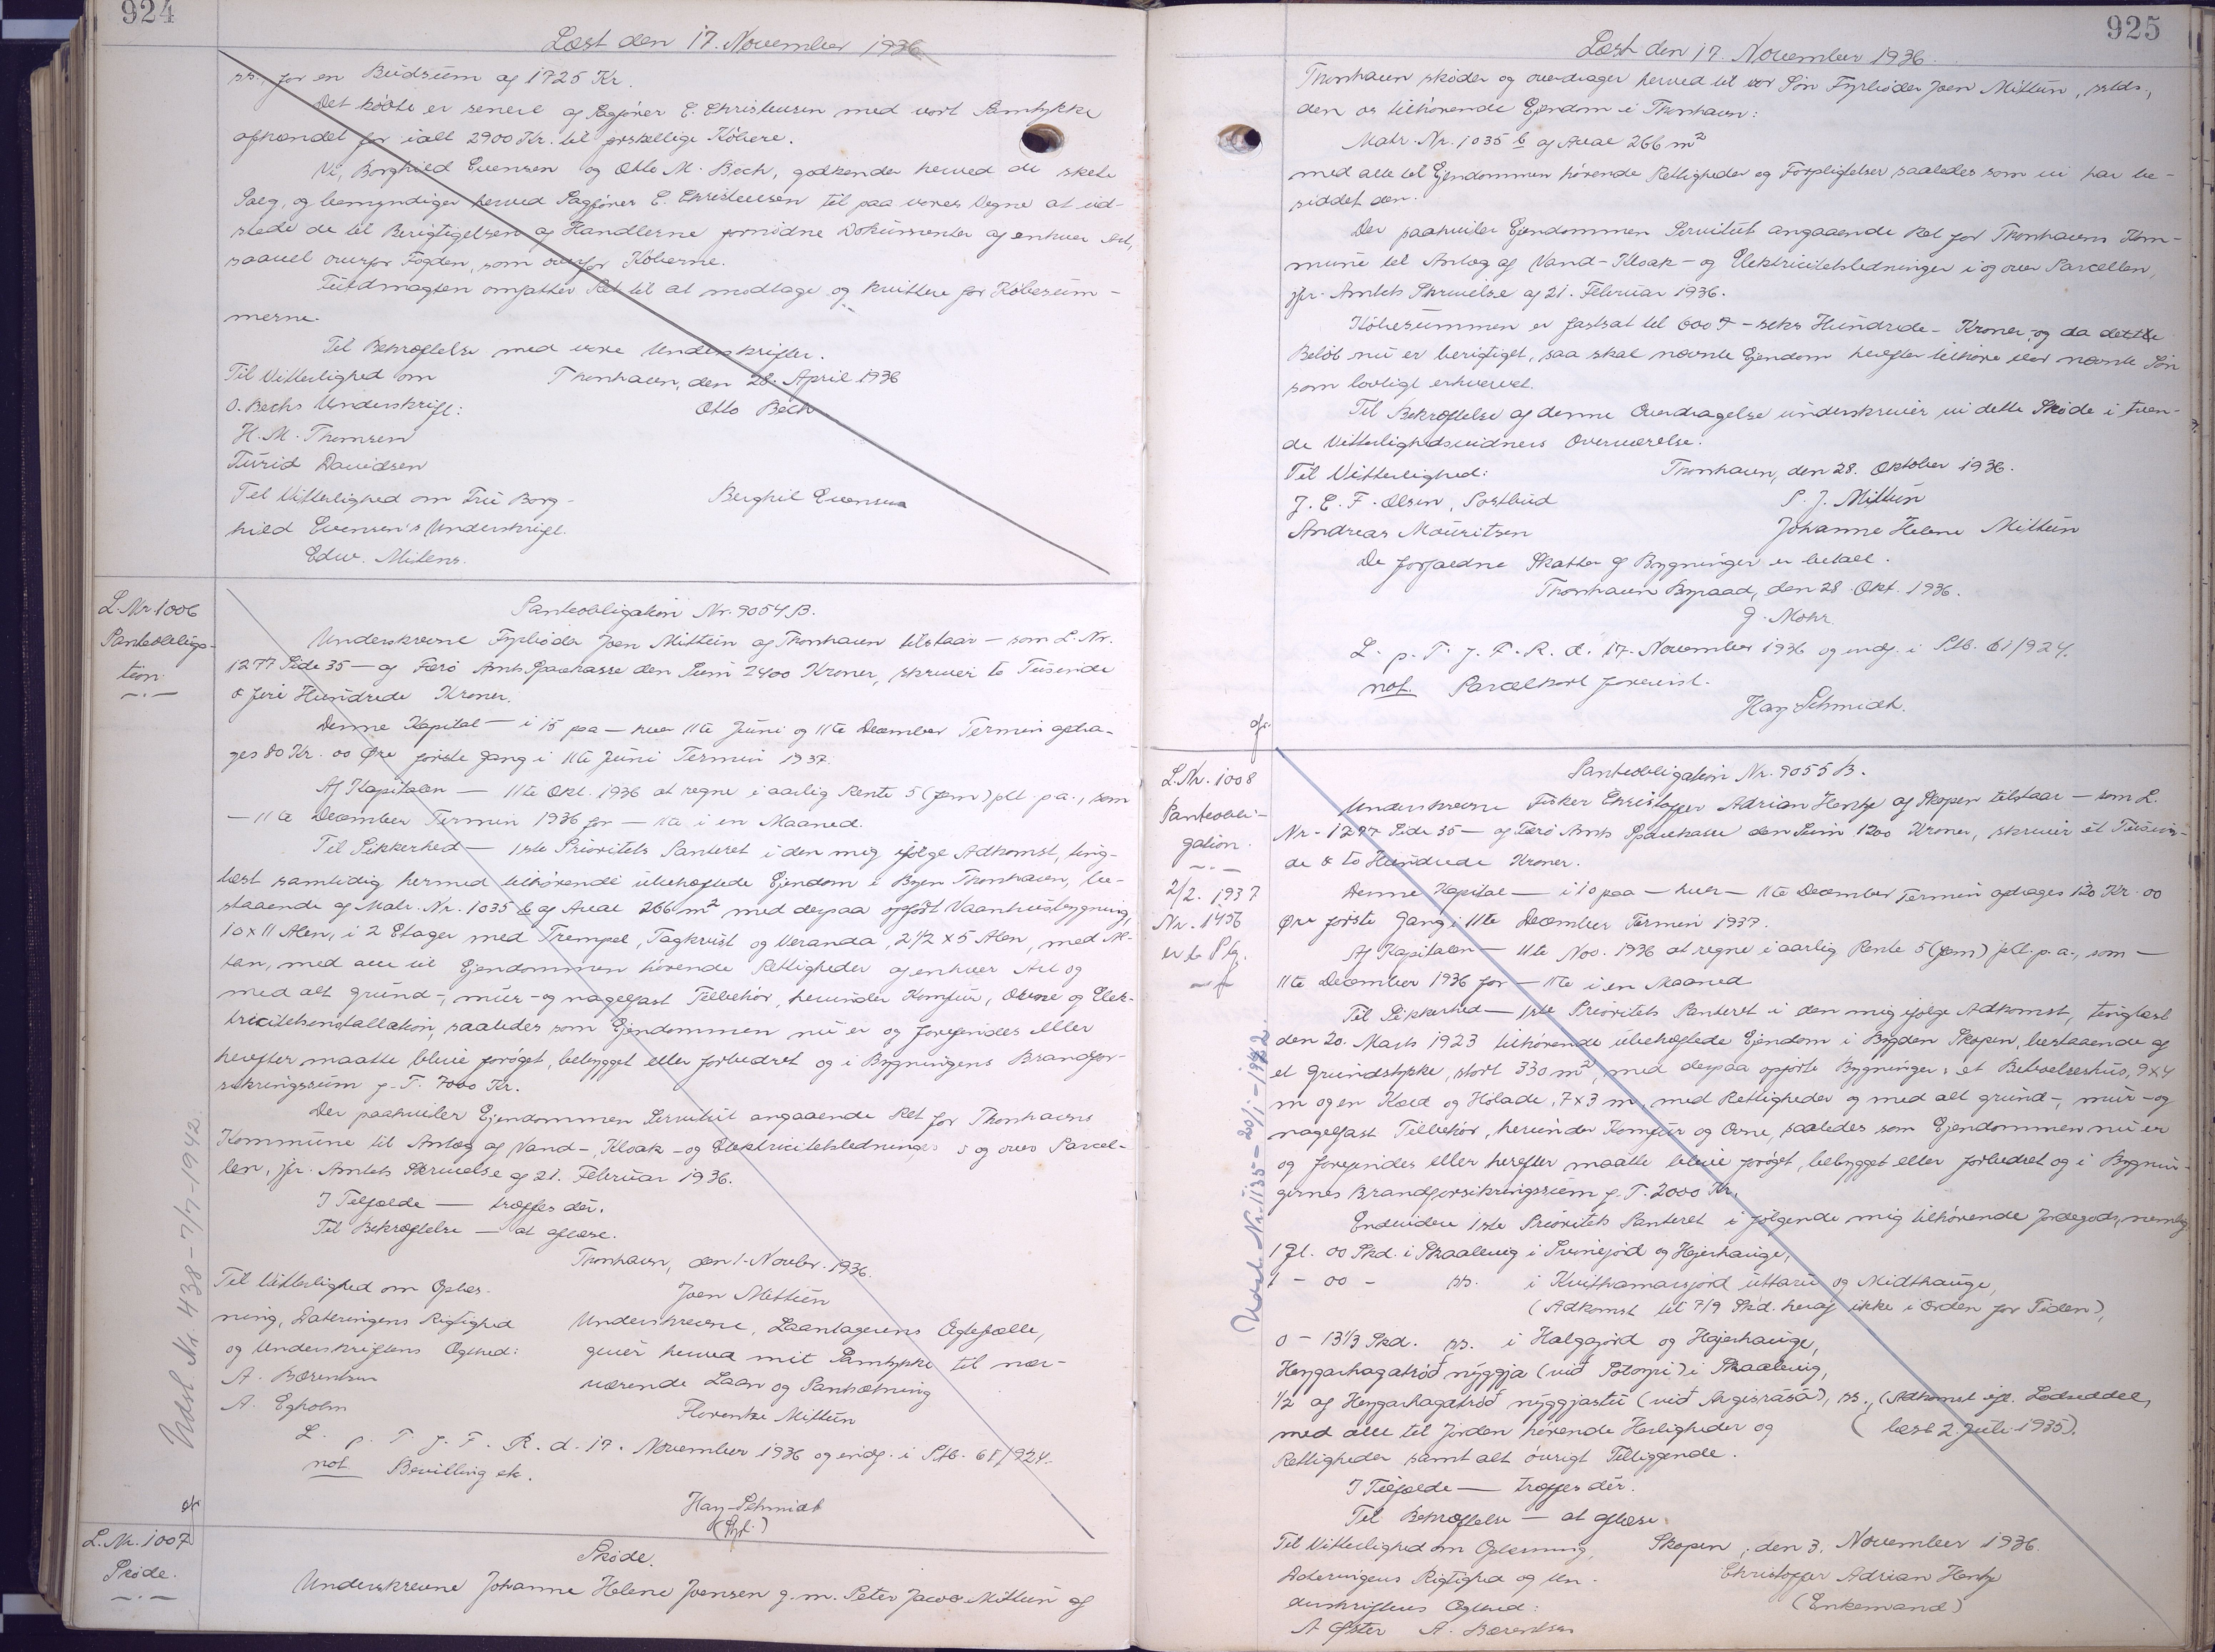 924
Læst den 17. November 1936
ss., for en Budsum af 1725 Kr.
Det købte er senere af Sagfører E. Christensen med vort Samtykke
afhændet for ialt 2900 Kr. til forskellige Købere.
Vi, Borghild Evensen og Otto M. Bech, godkender herved de skete
Salg, og bemyndiger herved Sagfører E. Christensen til paa vores Vegne at ud-
stede de til Berigtigelsen af Handlerne fornødne Dokumenter af enhver Art,
saavel overfor Fogden, som overfor Køberne.
Fuldmagten omfatter Ret til at modtage og kvittere for Købesum-
merne.
Til Bekræftelse med vore Underskrifter.
Til Vitterlighed om Thorshavn, den 28. April 1936
O. Bechs Underskrift: Otto Bech
H. M. Thomsen
Turid Davidsen
Til Vitterlighed om Fru Borg- Borghil Evensen
hild Evensen's Underskrift.
Edw. Mitens.
L. Nr. 1006
Panteobliga-
tion
Panteobligation Nr. 9054 B.
Underskrevne Fyrbøder Joen Mittun af Thorshavn tilstaar — som L. Nr.
1277 Side 35 — af Færø Amts Sparekasse den Sum 2400 Kroner, skriver to Tusende
& fire Hundrede Kroner.
Denne Kapital — i 15 paa — hver 11te Juni og 11te December Termin afdra-
ges 80 Kr. 00 Øre første Gang i 11te Juni Termin 1937.
Af Kapitalen — 11te Okt. 1936 at regne i aarlig Rente 5 (fem) pCt. p.a., som
— 11te December Termin 1936 for — 11te i en Maaned.
Til Sikkerhed — 1ste Prioritets Panteret i den mig ifølge Adkomst, ting-
læst samtidig hermed tilhørende ubehæftede Ejendom i Byen Thorshavn, be-
staaende af Matr. Nr. 1035 b af Areal 266 m² med derpaa opført Vaanhusbygning,
10 x 11 Alen, i 2 Etager med Trempel, Tagkvist og Veranda, 2½ x 5 Alen, med Al-
tan, med alle til Ejendommen hørende Rettigheder af enhver Art og
med alt grund-, mur- og nagelfast Tilbehør, herunder Komfur, Ovne og Elek-
tricitetsinstallation, saaledes som Ejendommen nu er og forefindes eller
herefter maatte blive forøget, bebygget eller forbedret og i Bygningens Brandfor-
sikringssum p. T. 7000 Kr.
Der paahviler Ejendommen Servitut angaaende Ret for Thorshavns
Kommune til Anlæg af Vand-, Kloak- og Elektricitetsledninger i og over Parcel-
len, jfr. Amtets Skrivelse af 21. Februar 1936.
I Tilfælde — træffes dér.
Til Bekræftelse — at aflæse.
Thorshavn, den 1. Novbr. 1936.
Til Vitterlighed om Oplæs- Joen Mittun
ning, Dateringens Rigtighed Underskrevne, Laantagerens Ægtefælle,
og Underskriftens Ægthed: giver herved mit Samtykke til nær-
A. Bærentsen værende Laan og Pantsætning
A. Egholm Florentze Mittun
L. p. T. f. F. R. d. 17. November 1936 og indf. i Ptb. 61/924.
not. Bevilling etc.
Hay-Schmidt
(Spf.)
Udsl. Nr. 438 - 7/7 - 1942.
L. Nr. 1007
Skøde.
Skøde.
Underskrevne Johanne Helene Joensen g. m. Peter Jacob Mittun af
925
Læst den 17. November 1936.
Thorshavn skøder og overdrager herved til vor Søn Fyrbøder Joen Mittun, sstds.,
den os tilhørende Ejendom i Thorshavn:
Matr. Nr. 1035 b af Areal 266 m²
med alle til Ejendommen hørende Rettigheder og Forpligtelser saaledes som vi har be-
siddet den.
Der paahviler Ejendommen Servitut angaaende Ret for Thorshavns Kom-
mune til Anlæg af Vand- Kloak- og Elektricitetsledninger i og over Parcellen,
jfr. Amtets Skrivelse af 21. Februar 1936.
Købesummen er fastsat til 600 - seks Hundrede - Kroner, og da dette
Beløb nu er berigtiget, saa skal nævnte Ejendom herefter tilhøre vor nævnte Søn
som lovligt erhvervet.
Til Bekræftelse af denne Overdragelse underskriver vi dette Skøde i tven-
de Vitterlighedsvidners Overværelse.
Til Vitterlighed: Thorshavn, den 28. Oktober 1936.
J. E. F. Olsen, Postbud P. J. Mittun
Andreas Mouritsen Johanne Helene Mittun
De forfaldne Skatter af Bygninger er betalt.
Thorshavn Byraad, den 28. Okt. 1936.
J. Mohr
L. p. T. f. F. R. d. 17. November 1936 og indf. i Ptb. 61/924.
not. Parcelkort forevist.
Hay-Schmidt.
L. Nr. 1008
Panteobli-
gation.
2/2. 1937
Nr. 1456
Panteobligation Nr. 9055 B.
Underskrevne Fisker Christoffer Adrian Hentze af Skopen tilstaar — som L.
Nr. 1277 Side 35 — af Færø Amts Sparekasse den Sum 1200 Kroner, skriver et Tusin-
de & to Hundrede Kroner.
Denne Kapital — i 10 paa — hver — 11te December Termin afdrages 120 Kr. 00
Øre første Gang i 11te December Termin 1937.
Af Kapitalen — 11te Nov. 1936 at regne i aarlig Rente 5 (fem) pCt. p.a., som —
11te December 1936 for — 11te i en Maaned
Til Sikkerhed — 1ste Prioritets Panteret i den mig ifølge Adkomst, tinglæst
den 20. Marts 1923 tilhørende ubehæftede Ejendom i Bygden Skopen, bestaaende af
et Grundstykke, stort 330 m², med derpaa opførte Bygninger: et Beboelseshus, 9x4
m og en Kæld og Hølade, 7x3 m, med Rettigheder og med alt grund-, mur- og
nagelfast Tilbehør, herunder Komfur og Ovne, saaledes som Ejendommen nu er
og forefindes eller herefter maatte blive forøget, bebygget eller forbedret og i Bygnin-
gernes Brandforsikringssum p. T. 2000 Kr.
Endvidere 1ste Prioritets Panteret i følgende mig tilhørende Jordegods, nemlig
1 Gl. 00 Skd. i Skaalevig i Svinejord og Hejerhauge,
1 - 00 - ss. i Kvithamarsjord uttaru og Midthauge,
(Adkomst til 7/9 Skd. heraf ikke i Orden for Tiden),
0 - 13⅓ Skd. ss. i Halgagjord og Hajerhauge,
Heygarhagatrøð nýggja (við ) i Skaalevig,
½ af Heygarhagatrøð nýggjastu (við Argisrásá), ss., (Adkomst ifl. Lodseddel,
med alle til Jorden hørende Herligheder og (læst 2. Juli 1935).
Rettigheder samt alt øvrigt Tilliggende.
I Tilfælde — træffes dér.
Til Bekræftelse — at aflæse.
Til Vitterlighed om Oplæsning, Skopen, den 3. November 1936.
Dateringens Rigtighed og Un- Christoffer Adrian Hentze
derskriftens Ægthed: (Enkemand)
A Øster A. Bærentsen
Udsl. Nr. 1135 - 20/1 - 1942.